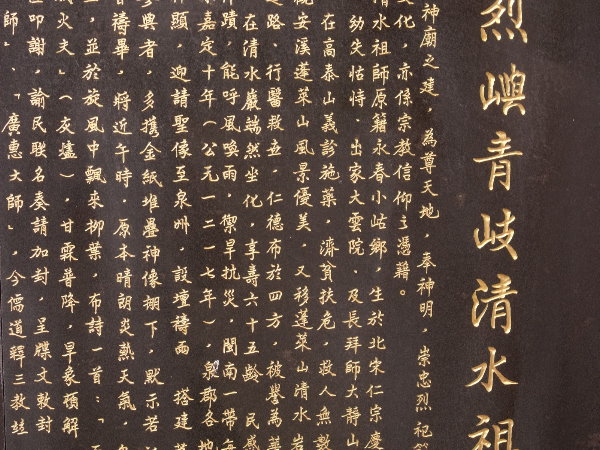 烈嶼青岐清水祖
神廟之建，為尊天地，奉神明，崇忠烈祀
文化，亦係宗教信仰之憑藉。
清水祖師原籍永春小岵鄉，生於北宋仁宗慶
幼失怙恃，出家大雲院，及長拜師大靜山
在高泰山義診施藥，濟貧扶危，救人無數
安溪蓬萊山風景優美，又移蓬萊山清水岩
路，行醫救立，仁德布於四方，被譽為
在清水巖端然坐化，享壽六十五齡，民感
蹟，能呼風喚雨，禦旱抗災，閩南一帶每
嘉定十年（公元一二一七年），泉郡各地
顯，迎請聖像至泉州，設壇禱雨，搭建
參與者，多攜金紙堆疊神像棚下，默示若
禱畢，將近午時，原本晴朗炎熱天氣，
，並於旋風中飄來柳葉，布詩一首：「
火夫」（灰燼），甘霖普降，旱象頓解
叩謝，諭民聯名奏請加封，呈牒文敕封
師」、「廣惠大師」，今儒道釋三教並